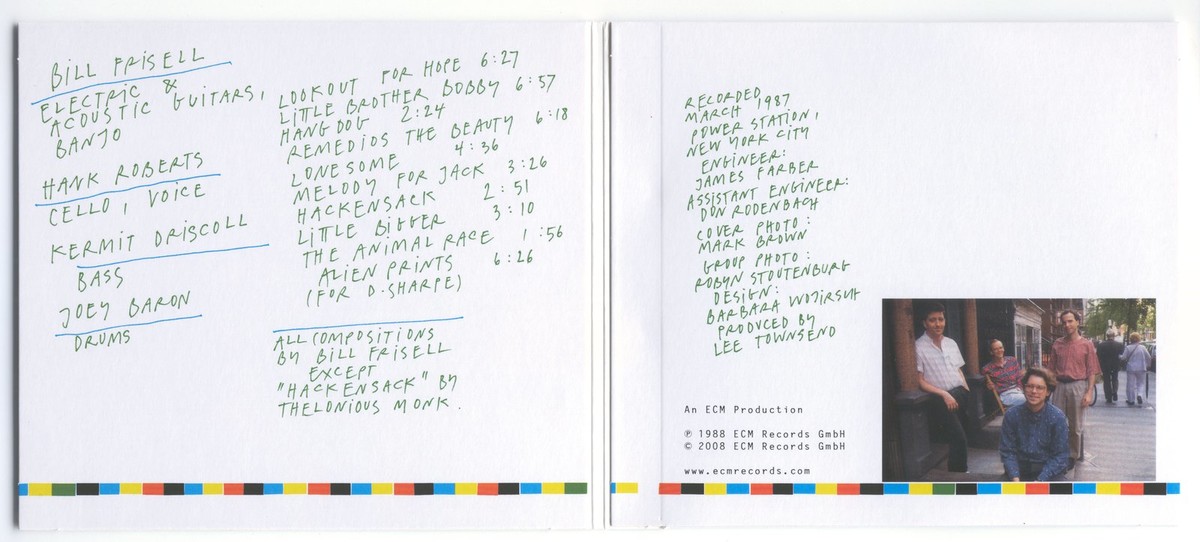 BILL FRISELL
ELECTRIC &
ACOUSTIC GUITARS,
BANJO
HANK ROBERTS
CELLO, VOICE
KERMIT DRISCOLL
BASS
JOEY BARON
DRUMS
LOOKOUT FOR HOPE 6:27
LITTLE BROTHER BOBBY 6:57
HANGDOG 2:24
REMEDIOS THE BEAUTY 6:18
LONESOME 4:36
MELODY FOR JACK 3:26
HACKENSACK 2:51
LITTLE BIGGER 3:10
THE ANIMAL RACE 1:56
ALIEN PRINTS 6:26
(FOR D. SHARPE)
ALL COMPOSITIONS
BY BILL FRISELL
EXCEPT
"HACKENSACK" BY
THELONIOUS MONK.
RECORDED
MARCH 1987
POWER STATION,
NEW YORK CITY
ENGINEER:
JAMES FARBER
ASSISTANT ENGINEER:
DON RODENBACH
COVER PHOTO:
MARK BROWN
GROUP PHOTO:
ROBYN STOUTENBURG
DESIGN:
BARBARA WOJIRSCH
PRODUCED BY
LEE TOWNSEND
An ECM Production
℗ 1988 ECM Records GmbH
© 2008 ECM Records GmbH
www.ecmrecords.com